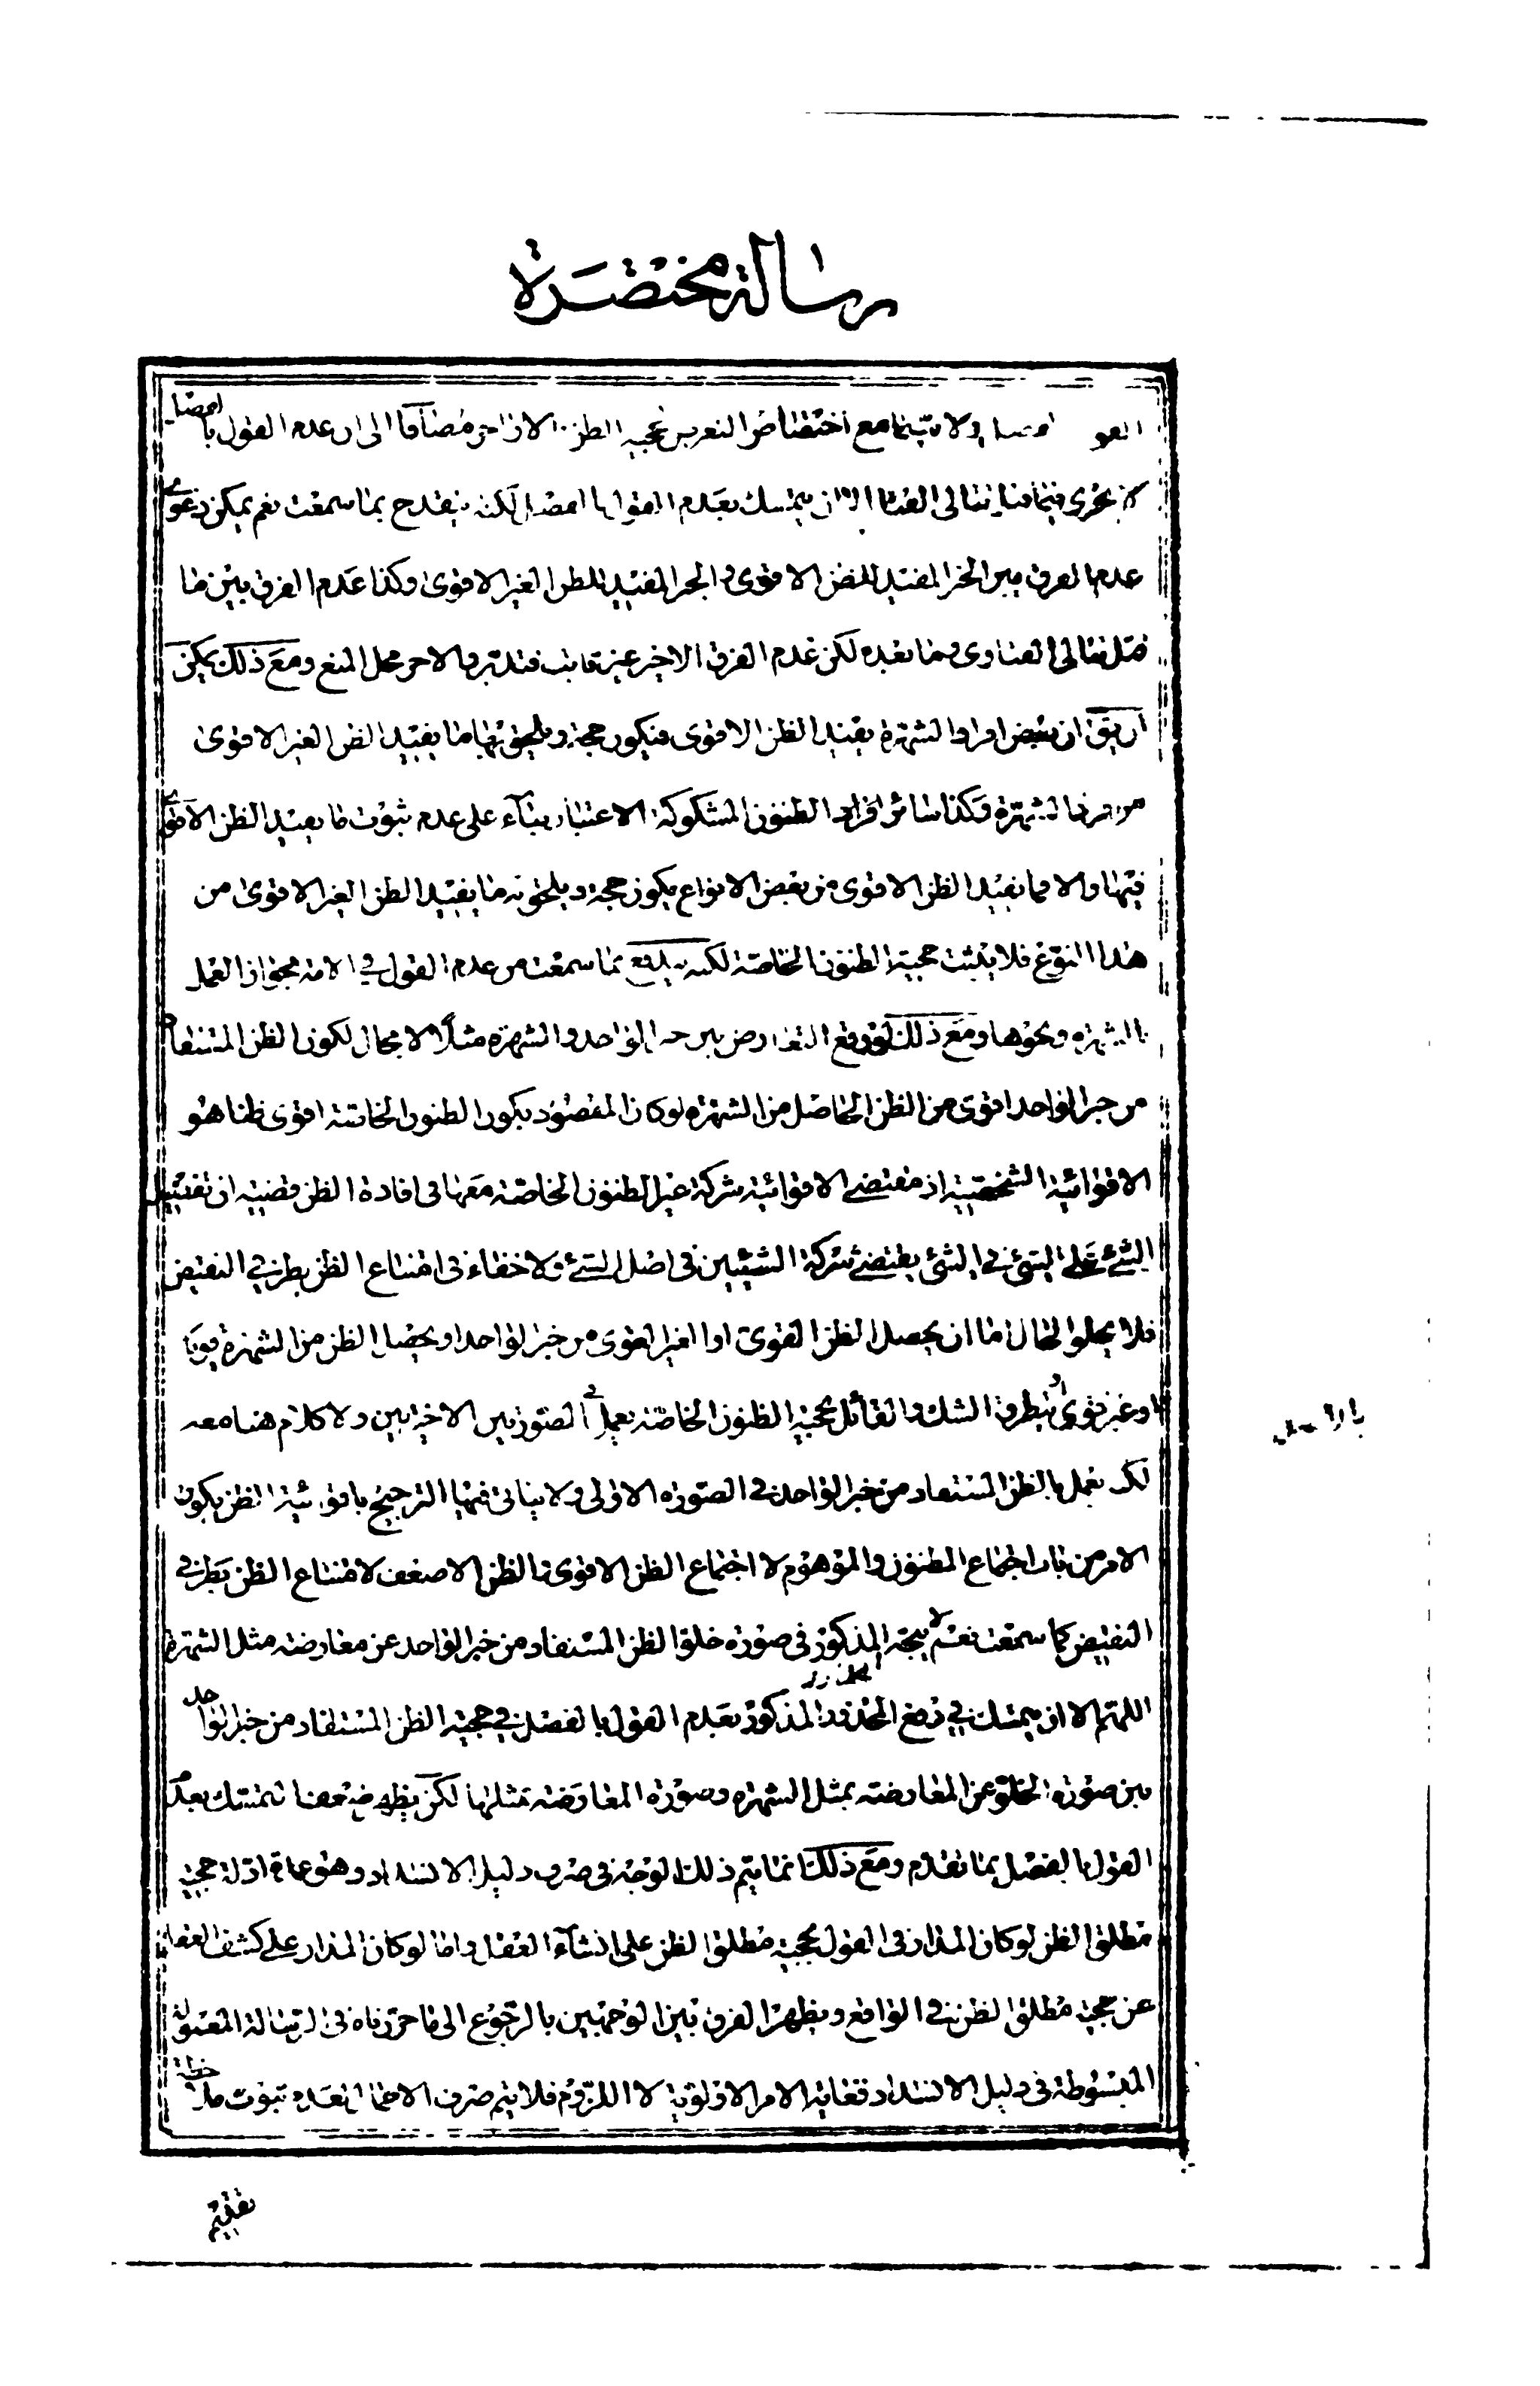 رسالة مختصرة
ولا سيّما مع اختصاص بحجية الظن مضافا الى ان عدم القول بامضاء
الا ان يتمسك بعدم القول با لكنه ينقدح بما سمعت نعم يمكن دعوى
عدم الفرق بين الخبر المفيد للظن الاقوى والخبر المفيد للظن الغير الاقوى وكذا عدم الفرق بين ما
لكن عدم الفرق الاخير غير ثابت فتدبر محل المنع ومع ذلك يمكن
ان يق ان بعض افراد الشهرة يفيد الظن الاقوى فيكون حجة ويلحق بها ما يفيد الظن الغير الاقوى
من الشهرة وكذا سائر افراد الظنون المشكوكة الاعتبار بناء على عدم ثبوت ما يفيد الظن الاقوى
فيها والا فما يفيد الظن الاقوى من بعض الانواع يكون حجة ويلحق به ما يفيد الظن الغير الاقوى من
هذا النوع فلا يثبت حجية الظنون الخاصة لكنه يندفع بما سمعت من عدم القول في الامة بجواز العمل
بالشهرة ونحوها ومع ذلك لو وقع التعارض بين خبر الواحد والشهرة مثلا لا مجال لكون الظن المستفاد
من خبر الواحد اقوى من الظن الحاصل من الشهرة لو كان المقصود بكون الظنون الخاصة اقوى ظنا هو
الاقوائية الشخصية اذ مقتضى الاقوائية شركة غير الظنون الخاصة معها فى افادة الظن قضية ان تفضيل
الشئ على الشئ في الشئ يقتضى شركة الشيئين فى اصل الشئ ولا خفاء فى امتناع الظن بطرفي النقيض
فلا يخلوا الحال اما ان يحصل الظن القوى او الغير القوى من خبر الواحد او يحصل الظن من الشهرة قويا
او غير قوى او يتطرق الشك والقائل بحجية الظنون الخاصة يعمل في الصورتين الاخيرتين ولا كلام هنا معه
لكنه يعمل بالظن المستفاد من خبر الواحد في الصورة الاولى ولا يتاتى فيها الترجيح باقوائية الظن بكون
الامر من باب اجتماع المظنون والموهوم لا اجتماع الظن الاقوى والظن الاضعف لامتناع الظن بطرفي
النقيض كما سمعت نعم لا يتجه المذكور فى صورة خلو الظن المستفاد من خبر الواحد عن معارضة مثل الشهرة
اللهم الا ان يتمسك في دفع المحذور المذكور بعدم القول بالفصل في حجية الظن المستفاد من خبر الواحد
بين صورة الخلو عن المعارضة بمثل الشهرة وصورة المعارضة بمثلها لكن يظهر ضعف التمسك بعدم
القول بالفصل بما تقدم ومع ذلك انما يتم ذلك الوجه فى صرف دليل الانسداد وهو عامة ادلة حجية
مطلق الظن لو كان المدار فى القول بحجية مطلق الظن على انشاء العقل واما لو كان المدار على كشف العقل
عن حجية مطلق الظن في الواقع ويظهر الفرق بين الوجهين بالرجوع الى ما حررناه فى الرسالة المعمولة
المبسوطة فى دليل الانسداد فغاية الامر الاولوية لا اللزوم فلا يتم صرف الاجماع لعدم ثبوت ملاحظة